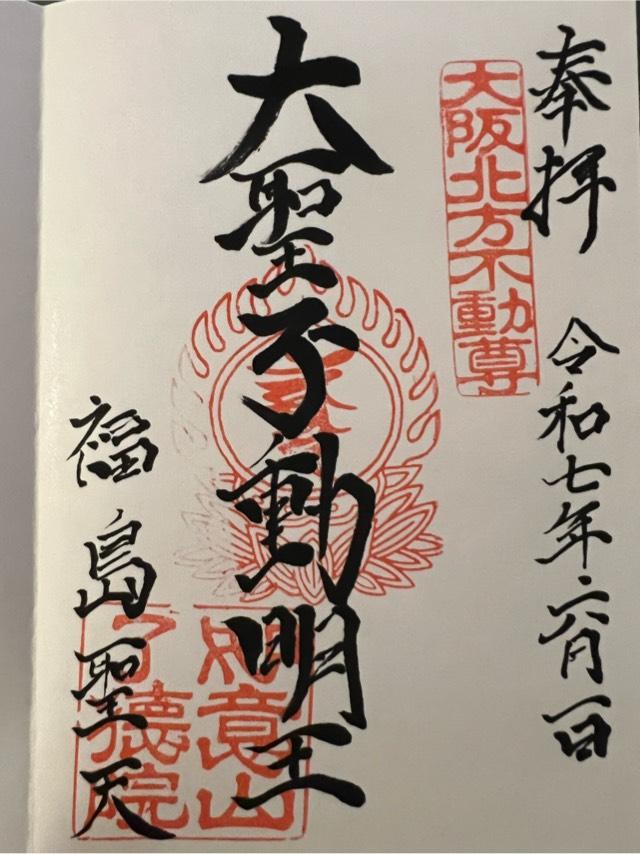 奉拝 令和七年六月一日
大阪北方不動尊
大聖不動明王
如意山
了徳院
福島聖天